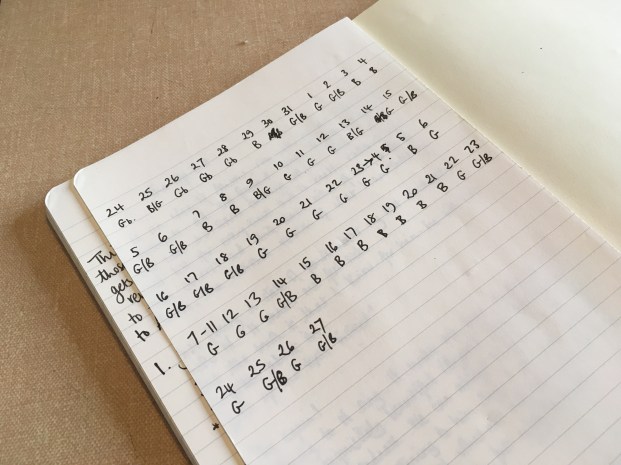 24 25 26 27 28 29 30 31 1 2 3 4
Gb. B/G Gb Gb Gb B G/B G G/B B B
5 6 7 8 9 10 11 12 13 14 15
G/B G/B B B B/G G G G B/G B/G G/B
16 17 18 19 20 21 22 23→4 5 6
G/B G/B G/B G G G G G G B G
7-11 12 13 14 15 16 17 18 19 20 21 22 23
G G G G/B B B B B B B B G G/B
24 25 26 27
G G/B G G/B
to
to
1.